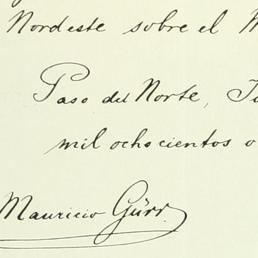 Nordeste sobre el
Paso del Norte,
mil ochocientos
Mauricio Gürr.